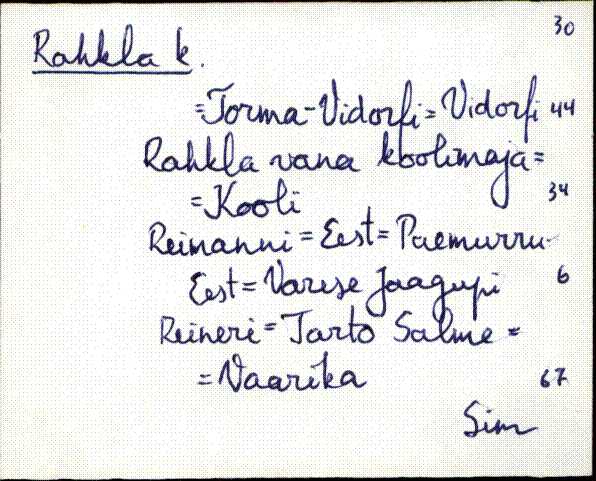 30
Rahkla k.
=Torma-Vidorfi=Vidorfi 44
Rahkla vana koolimaja=
=Kooli 34
Reinanni=Eest=Paemurru-
Eest=Varese Jaagupi 6
Reineri=Tarto Salme=
=Vaarika 67
Sim